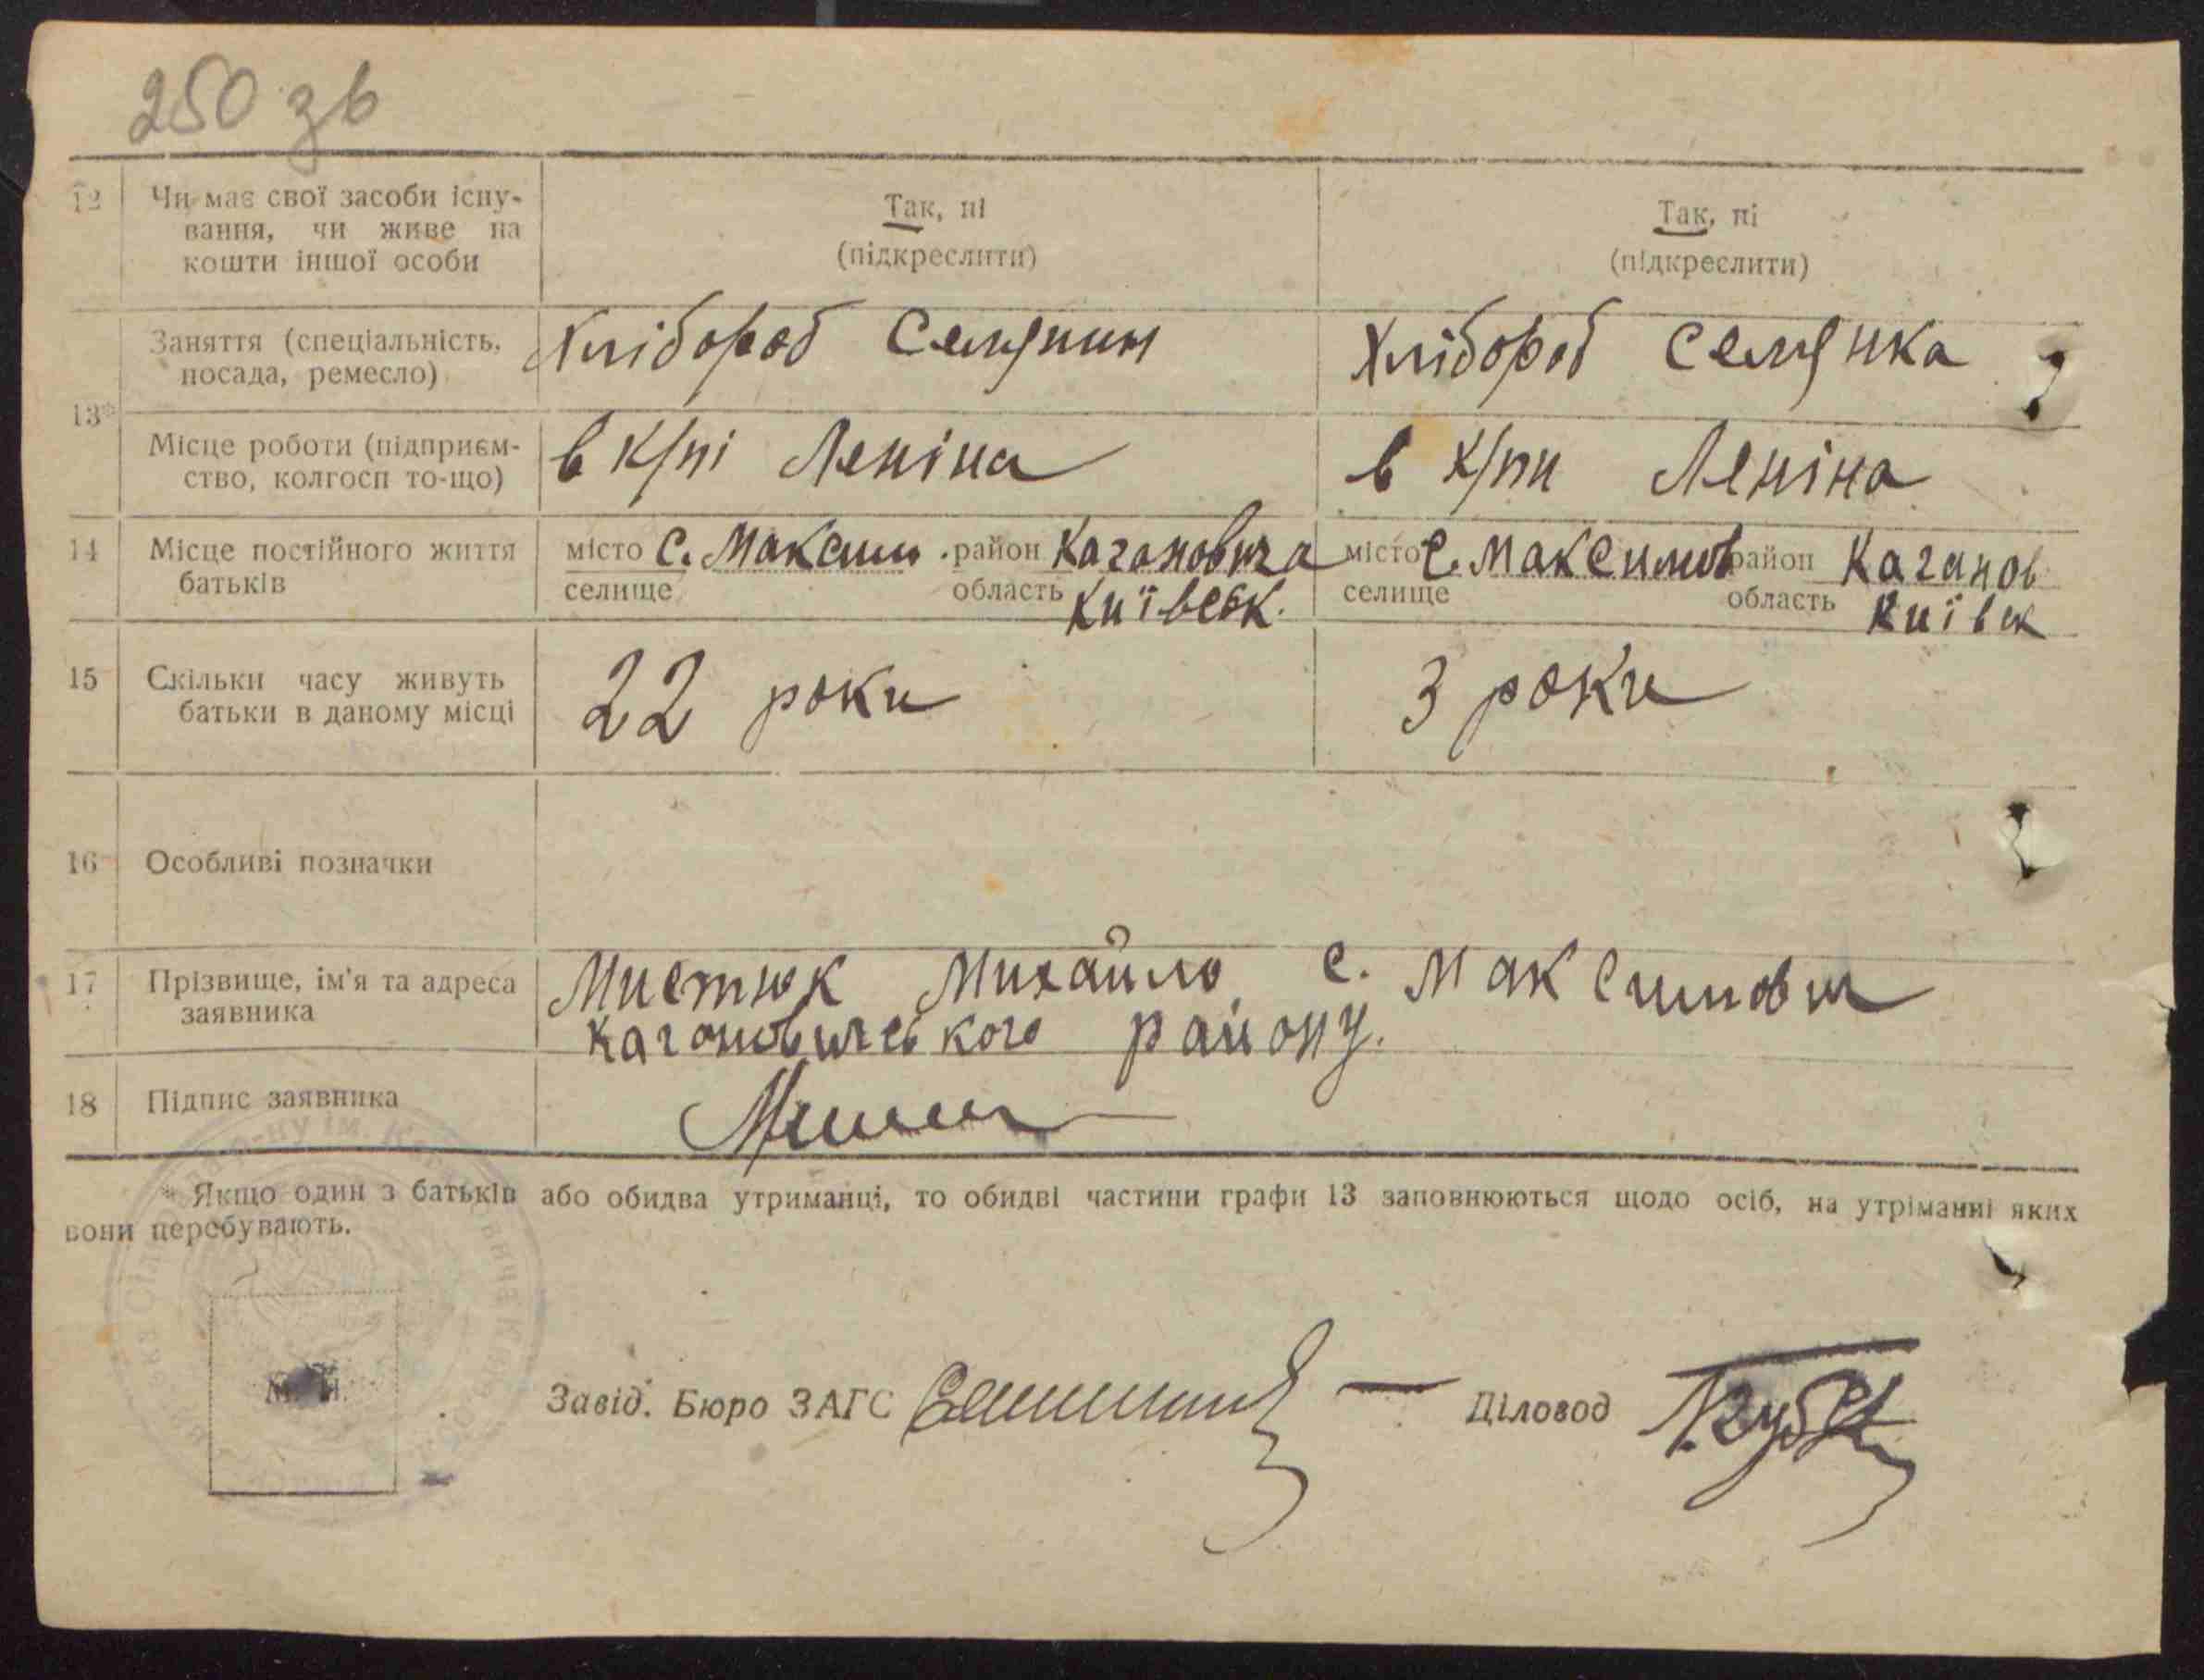 250 зв
12 Чи має свої засоби існу-
вання, чи живе на
кошти іншої особи
Так, ні
(підкреслити)
Так, ні
(підкреслити)
13*
Заняття (спеціальність,
посада, ремесло)
Хлібороб Селянин
Хлібороб Селянка
Місце роботи (підприєм-
ство, колгосп то-що)
в к/пі Леніна
в к/пи Леніна
14 Місце постійного життя
батьків
місто с. Максим. район Кагановича
селище область Київськ.
місто с. Максимов район Каганов
селище область Київск
15 Скільки часу живуть
батьки в даному місці
22 роки
3 роки
16 Особливі позначки
17 Прізвище, ім'я та адреса
заявника
Мистюк Михайло с. Максимович
Кагановичського району.
18 Підпис заявника
* Якщо один з батьків або обидва утриманці, то обидві частини графи 13 заповнюються щодо осіб, на утріманні яких
вони перебувають.
М. П.
Завід. Бюро ЗАГС
Діловод